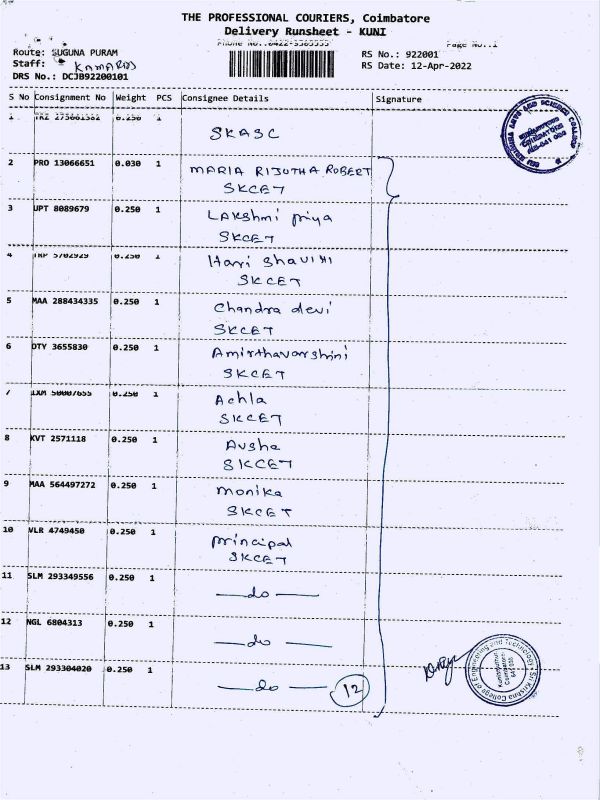 THE PROFESSIONAL COURIERS, Coimbatore
Delivery Runsheet - KUNI
Phone No.:0422-
Page No.:1
Route: SUGUNA PURAM
RS No.: 922001
Staff:
RS Date: 12-Apr-2022
DRS No.: DCJB92200101
S No Consignment No Weight PCS Consignee Details Signature
1 0.250 1
SKASC
2 PRO 13066651 0.030 1 MARIA RIJUTHA ROBERT
SKCET
3 UPT 8089679 0.250 1 LAKshmi Priya
SKCET
4 TRP 5702929 0.250 1 Hari
SKCET
5 MAA 288434335 0.250 1 Chandra devi
SKCET
6 DTY 3655830 0.250 1 Amirthavarshini
SKCET
7 IXM 50007655 0.250 1 Achla
SKCET
8 KVT 2571118 0.250 1 Avsha
SKCET
9 MAA 564497272 0.250 1 monika
SKCET
10 VLR 4749450 0.250 1 principal
SKCET
11 SLM 293349556 0.250 1 —do—
12 NGL 6804313 0.250 1 —do—
13 SLM 293304020 0.250 1 —do— 12
Sri Krishna College of Engineering and Technology
Kuniamuthur
Coimbatore
641 008